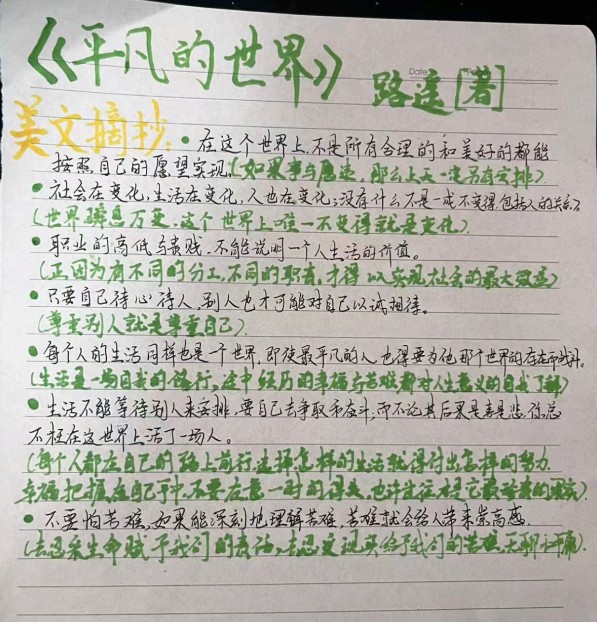 《平凡的世界》 路遥[著]
Date
美文摘抄:
• 在这个世界上,不是所有合理的和美好的都能
按照自己的愿望实现.(如果事与愿违,那么上天一定另有安排)
• 社会在变化,生活在变化,人也在变化;没有什么不是一成不变得,包括人的关系?
(世界瞬息万变,这个世界上唯一不变得就是变化).
• 职业的高低与贵贱,不能说明一个人生活的价值。
(正因为有不同的分工,不同的职责,才得以实现社会的最大效益)
• 只要自己待心待人,别人也才可能对自己以诚相待。
(尊重别人就是尊重自己).
• 每个人的生活同样也是一个世界,即使最平凡的人,也得要为他那个世界的存在而战斗.
(生活是一场自我的修行,途中经历的幸福与苦难都对人生意义的自我了解)
• 生活不能等待别人来安排,要自己去争取和奋斗,而不论其后果是喜是悲,你总
不枉在这世界上活了一场人。
(每个人都在自己的路上前行,选择怎样的生活就得付出怎样的努力.
幸福把握在自己手中,不要在意一时的得失,也许往往才是它最的果实)
• 不要怕苦难,如果能深刻地理解苦难,苦难就会给人带来崇高感.
(去忍受生命赋予我们的责任,去忍受现实给予我们的苦难,无聊和平庸).